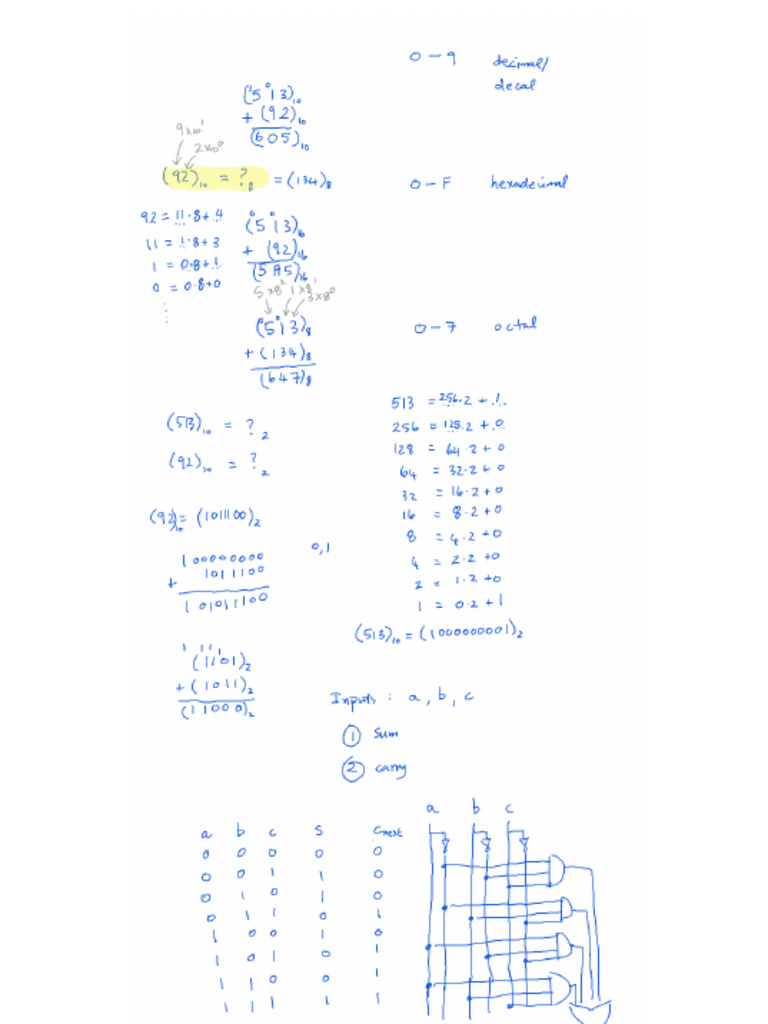 0 – 9 decimal/
decal
(5 1 3)₁₀
+ (92)₁₀
(605)₁₀
9×10¹
2×10⁰
(92)₁₀ = ?₈ = (134)₈
0 – F hexadecimal
92 = 11·8 + 4
11 = 1·8 + 3
1 = 0·8 + 1
0 = 0·8 + 0
(5 1 3)₁₆
+ (92)₁₆
(5A5)₁₆
5×8² 1×8¹ 3×8⁰
(5 1 3)₈
+ (134)₈
(647)₈
0 – 7 octal
(513)₁₀ = ?₂
(92)₁₀ = ?₂
513 = 256·2 + 1
256 = 128·2 + 0
128 = 64·2 + 0
64 = 32·2 + 0
32 = 16·2 + 0
16 = 8·2 + 0
8 = 4·2 + 0
4 = 2·2 + 0
2 = 1·2 + 0
1 = 0·2 + 1
(513)₁₀ = (1000000001)₂
(92)₁₀ = (1011100)₂
0,1
+ 1011100
1 1 1 1
(1101)₂
+ (1011)₂
(11000)₂
Inputs : a, b, c
① Sum
② carry
a b c S Cnext
0 0 0 0 0
0 0 1 1 0
0 1 0 1 0
0 1 1 0 1
1 0 0 1 0
1 0 1 0 1
1 1 0 0 1
1 1 1 1 1
a b c